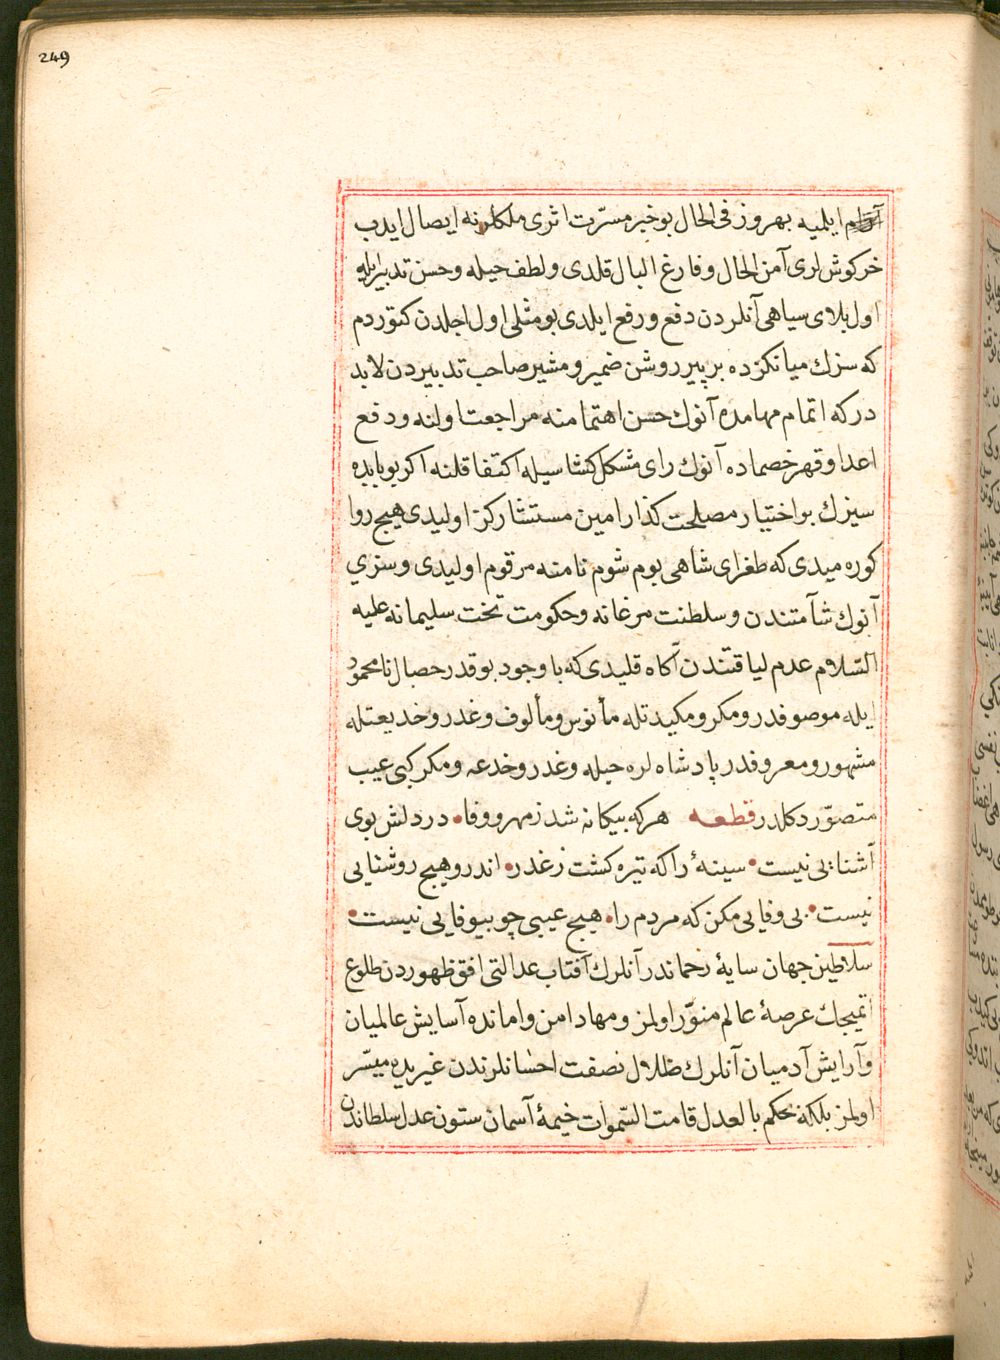 249
آرام ایلمیه بهروز فی الحال بو خبر مسرّت اثری ملکلرنه ایصال ایدب
خرکوش لری آمن الحال و فارغ البال قلدی و لطف حیله و حسن تدبیرایله
اول بلای سیاهی آنلردن دفع و رفع ایلدی بو مثلی اول اجلدن کتوردم
که سزك میانکزده بر پیر روشن ضمیر و مشیر صاحب تدبیردن لابد
در که اتمام مهامده آنوك حسن اهتمامنه مراجعت اولنه و دفع
اعدا و قهر خصماده آنوك رای مشکل کشاسیله اکتفا قلنه اکر بو بابده
سیزك بو اختیار مصلحت کذار امین مستشارکز اولیدی هیچ روا
کوره میدی که طغرای شاهی بوم شوم نامنه مرقوم اولیدی و سزی
آنوك شآمتندن و سلطنت مرغانه و حکومت تخت سلیمانه علیه
السّلام عدم لیاقتندن آکاه قلیدی که با وجود بو قدر خصال نامحمود
ایله موصوفدر و مکر و مکیدتله مأنوس و مألوف و غدر و خدیعتله
مشهور و معروفدر پادشاه لره حیله و غدر و خدعه و مکر کبی عیب
متصوّر دکلدر قطعه هرکه بیکانه شد ز مهر و وفا • در دلش بوی
آشنایی نیست • سینهٔ را که تیره کشت ز غدر • اندرو هیچ روشنایی
نیست • بی وفایی مکن که مردم را • هیچ عیبی چو بیوفایی نیست •
سلاطین جهان سایهٔ رحماندر آنلرك آفتاب عدالتی افق ظهوردن طلوع
اتمیجك عرصهٔ عالم منوّر اولمز و مهاد امن و امانده آسایش عالمیان
و آرایش آدمیان آنلرك ظلال نصفت احسانلرندن غیریده میسّر
اولمز بلکه بحکم بالعدل قامت السّموات خیمهٔ آسمان ستون عدل سلطاندن